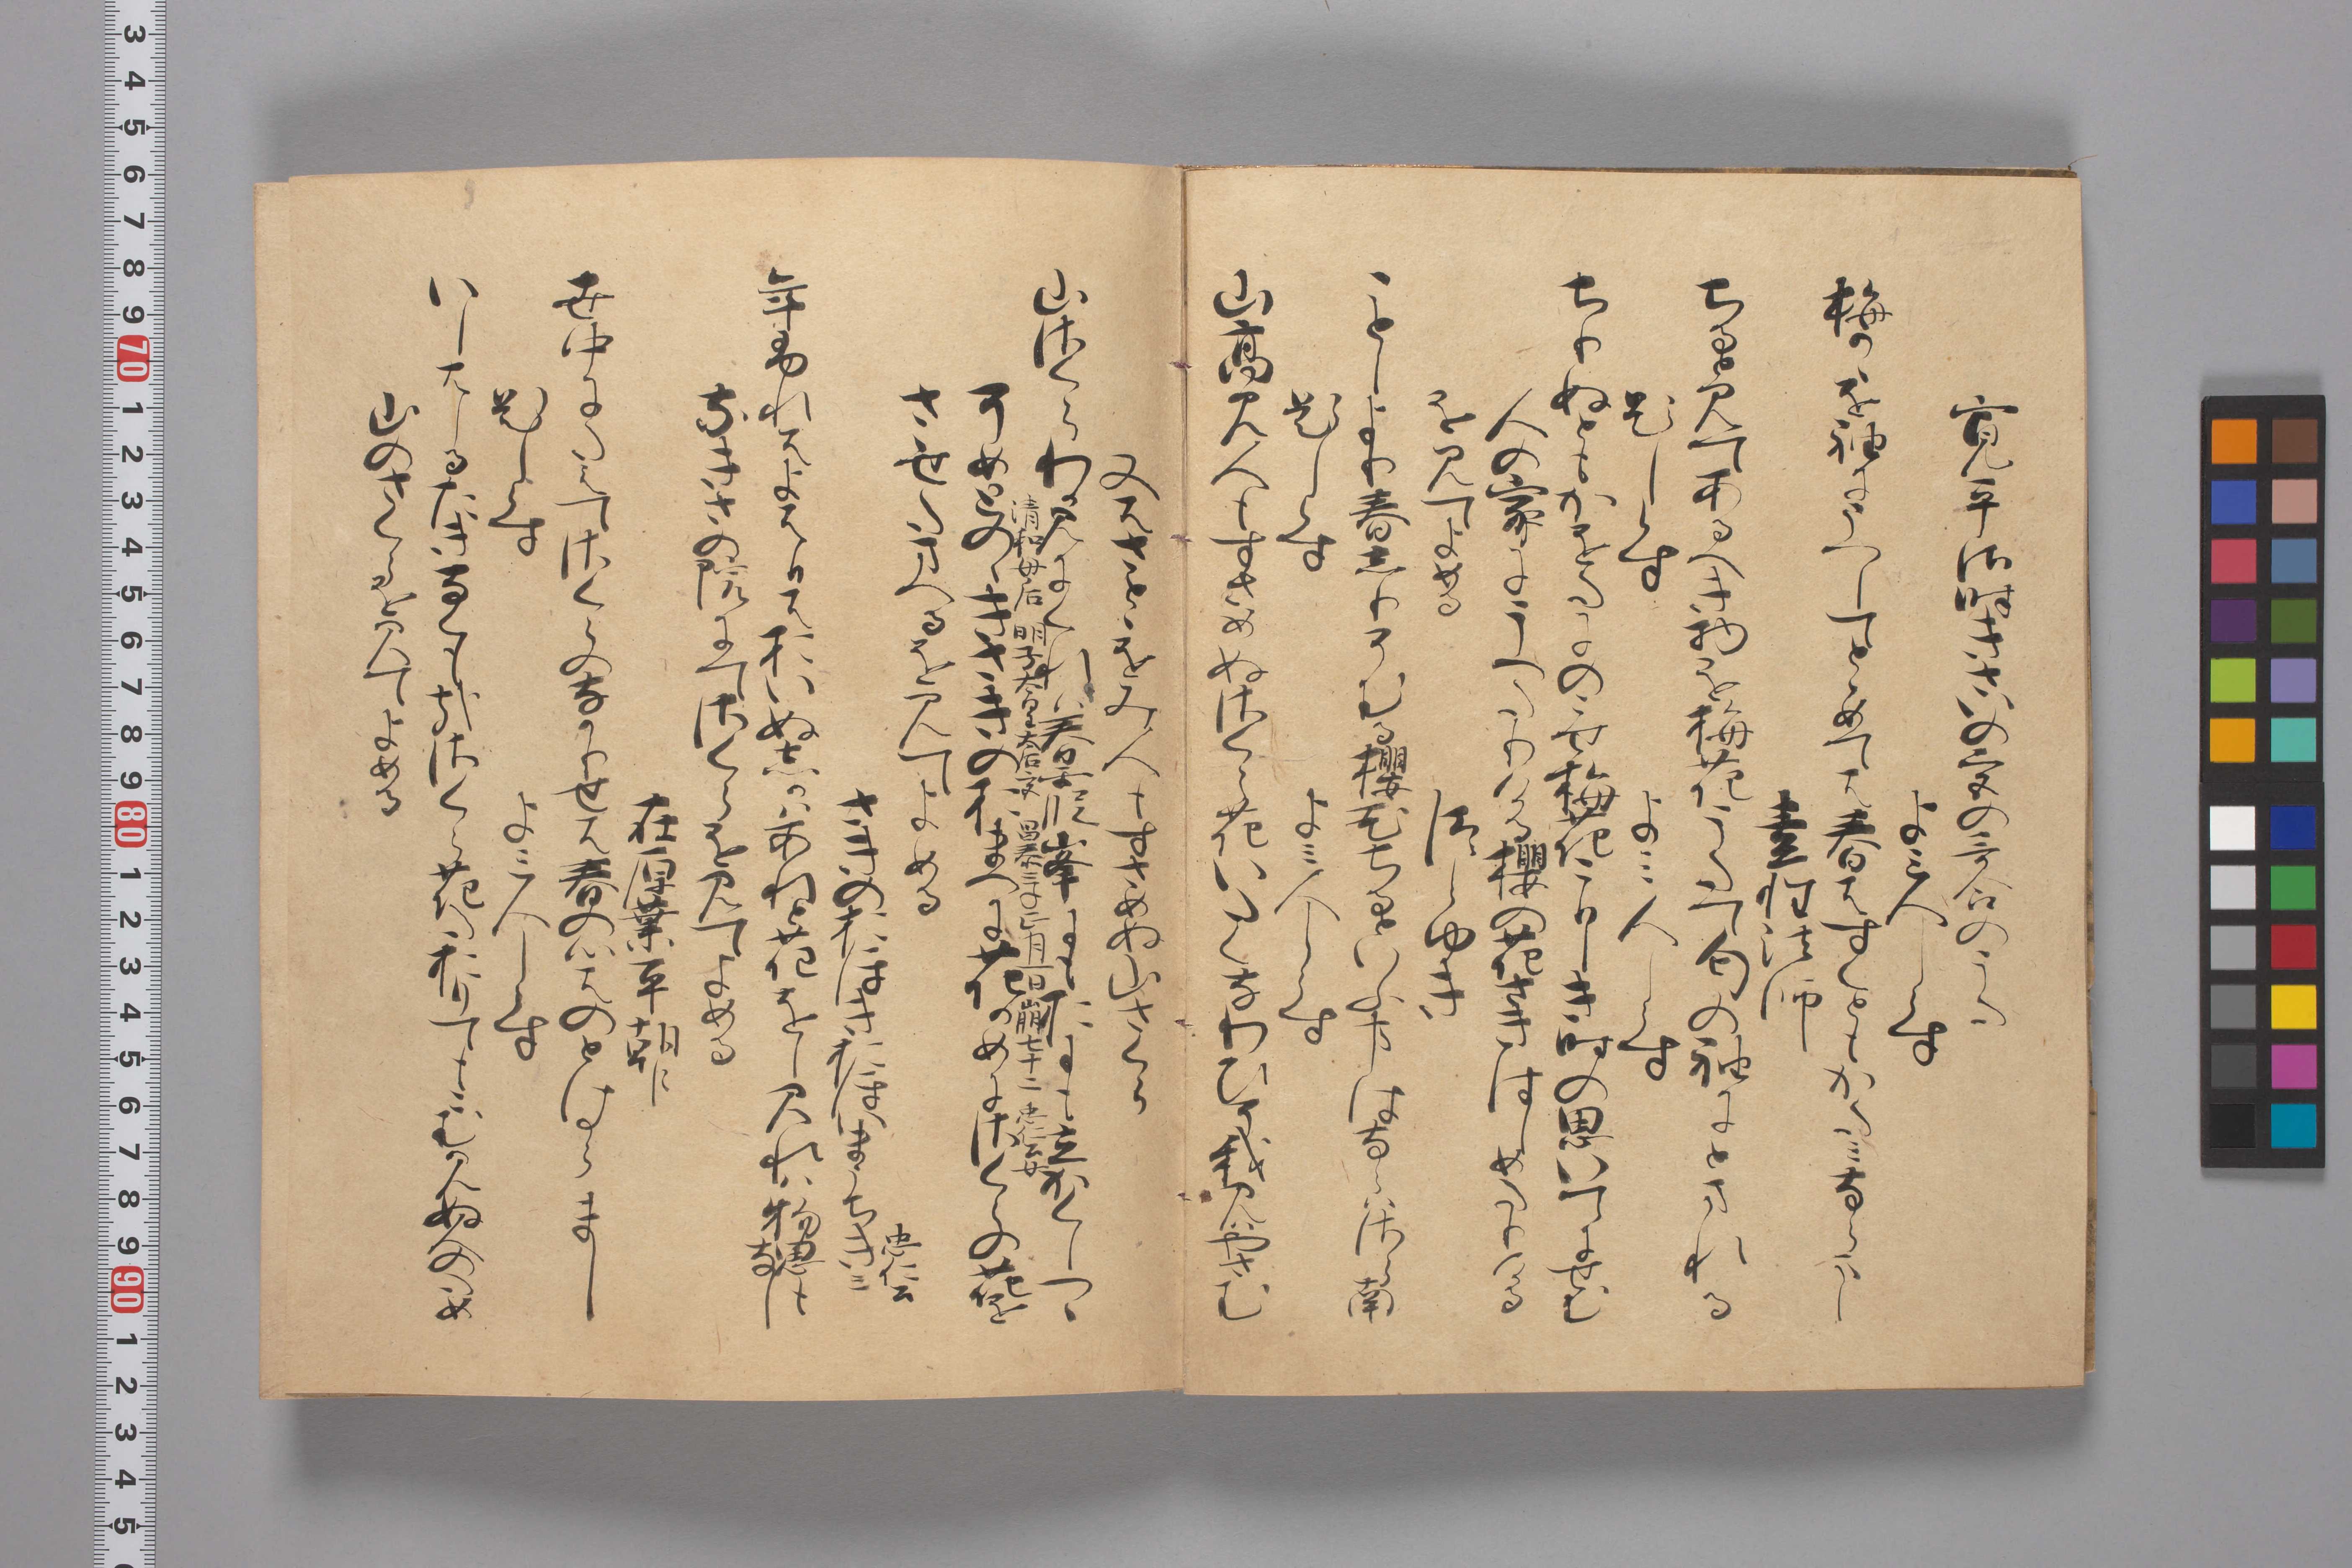 寛平御時きさいの宮の哥合のうた
よみ人しらす
梅かゝを袖にうつしてとゝめては春はすくともかたみならまし
素性法師
ちると見てあるへき物を梅花うたて匂の袖にとまれる
題しらす　よみ人しらす
ちりぬともかをたにのこせ梅花こひしき時の思いてにせむ
人の家にうへたりける櫻の花さきはしめたりける
を見てよめる
つらゆき
ことしより春しりそむる櫻花ちるといふ事はならはさら南
題しらす　よみ人しらす
山高み人もすさめぬさくら花いたくなわひそ我見はやさむ
又はさとゝをみ人もすさめぬ山さくら
山さくらわか見にくれは春霞峯にもおにも立かくしつゝ
清和母后　明子太皇太后宮　昌泰三年正月日崩七十二　忠仁公女
そめとのゝきさきのおまへに花かめにさくらの花を
させたまへるを見てよめる
忠仁公
さきのおほきおほいまうちきみ
年ふれはよはひはおいぬしかはあれと花をし見れは物思もなし
なきさの院にてさくらを見てよめる
在原業平朝臣
世中にたえてさくらのなかりせは春の心はのとけからまし
題しらす　よみ人しらす
いしはしるたきなくもかなさくら花たおりてもこむ見ぬ人のため
山のさくらを見てよめる